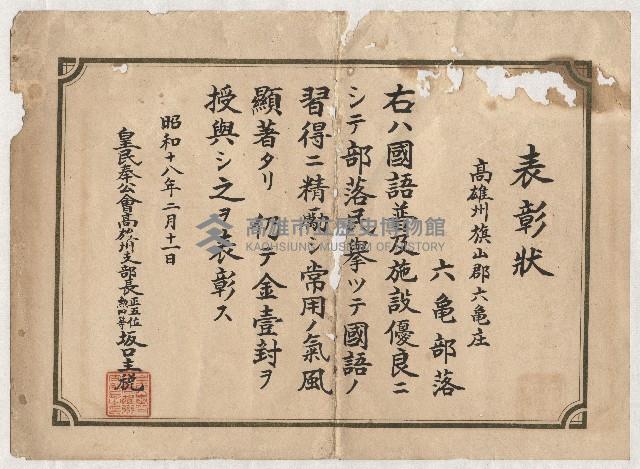 表彰狀
高雄州旗山郡六亀庄
六亀部落
右ハ國語普及施設優良ニ
シテ部落民擧ツテ國語ノ
習得ニ精勵シ常用ノ氣風
顯著タリ仍テ金壹封ヲ
授與シ之ヲ表彰ス
昭和十八年二月十一日
皇民奉公會高雄州支部長正五位勲四等坂口主税
高雄市立歷史博物館
KAOHSIUNG MUSEUM OF HISTORY